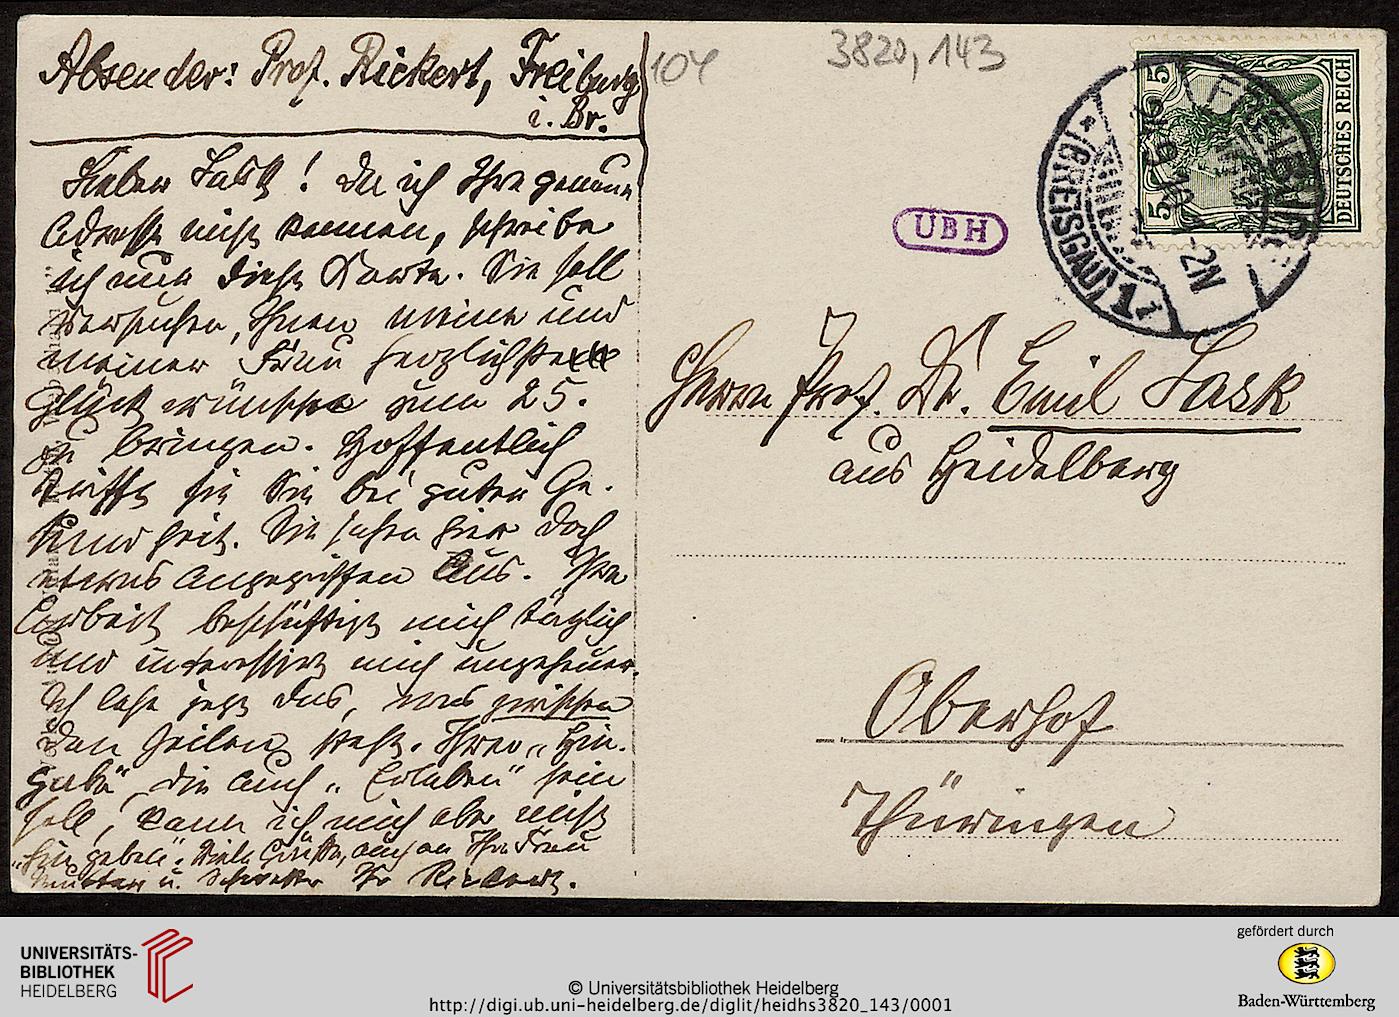 Absender: Prof. Rickert, Freiburg
i. Br.
104
3820,143
Lieber Lask! Da ich Ihre genaue
Adresse nicht kenne, schreibe
ich nur diese Karte. Sie soll
versuchen, Ihnen meine und
meiner Frau herzlichste
Glückwünsche zum 25.
zu bringen. Hoffentlich
trifft sie Sie bei guter Ge-
sundheit. Sie sahen hier doch
etwas angegriffen aus. Ihre
Arbeit beschäftigt mich täglich
und interessirt mich ungeheuer.
Ich lese jetzt das, was zwischen
den Zeilen steht. Ihrer „Hin-
gabe“, die auch „Erleben“ sein
soll, kann ich mich aber nicht
„hingeben“. Viele Grüße, auch an Ihre Frau
Mutter u. Schwester Ihr Rickert.
UBH
DEUTSCHES REICH
5
5
FREIBURG
* (BREISGAU) 1
2-3N
Herrn Prof. Dr. Emil Lask
aus Heidelberg
Oberhof
Thüringen
UNIVERSITÄTS-
BIBLIOTHEK
HEIDELBERG
© Universitätsbibliothek Heidelberg
http://digi.ub.uni-heidelberg.de/diglit/heidhs3820_143/0001
gefördert durch
Baden-Württemberg